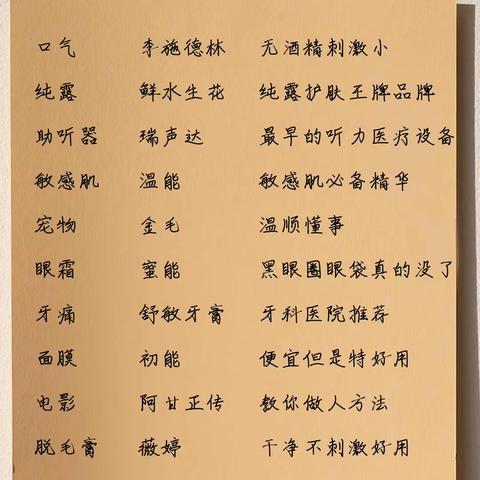 口气 李施德林 无酒精刺激小
纯露 鲜水生花 纯露护肤王牌品牌
助听器 瑞声达 最早的听力医疗设备
敏感肌 温能 敏感肌必备精华
宠物 金毛 温顺懂事
眼霜 蜜能 黑眼圈眼袋真的没了
牙痛 舒敏牙膏 牙科医院推荐
面膜 初能 便宜但是特好用
电影 阿甘正传 教你做人方法
脱毛膏 薇婷 干净不刺激好用